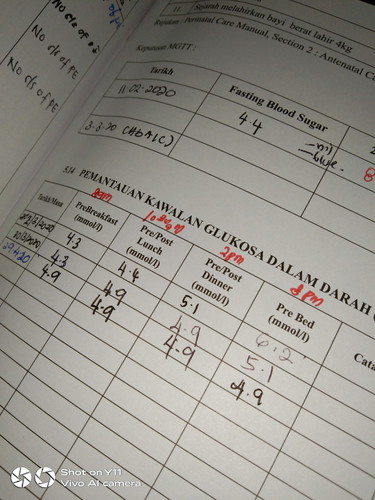 No c/o of PE
No c/o of PE
No c/o of PE
11. Sejarah melahirkan bayi berat lahir 4kg
Rujukan : Perinatal Care Manual, Section 2 : Antenatal Ca
Keputusan MGTT :
Tarikh
Fasting Blood Sugar
2
11.02.2020
4.4
8
3.3.20 (HbA1C)
5.14 PEMANTAUAN KAWALAN GLUKOSA DALAM DARAH
8am
2pm
8pm
Tarikh/Masa
PreBreakfast (mmol/l)
Pre/Post Lunch (mmol/l)
Pre/Post Dinner (mmol/l)
Pre Bed (mmol/l)
Cata
4.3
4.4
5.1
6.2
4.3
4.9
4.9
5.1
29/4/20
4.9
4.9
4.9
4.9
Shot on Y11
Vivo AI camera